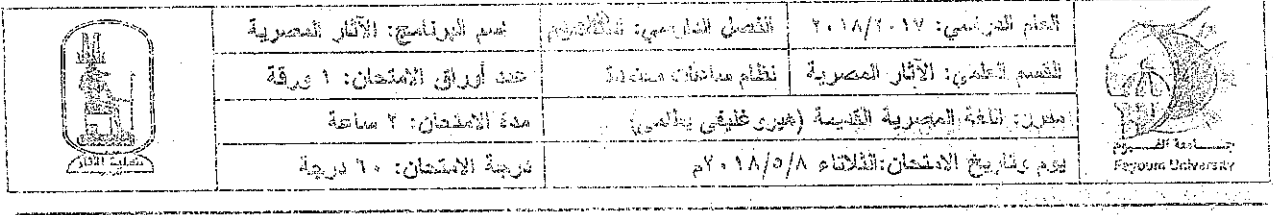 العام الدراسي: ٢٠١٨/٢٠١٧ الفصل الدراسي: اسم البرنامج: الآثار المصرية
القسم العلمي: الآثار المصرية نظام ساعات معتمدة عدد أوراق الامتحان: ١ ورقة
مقرر: اللغة المصرية القديمة (هيروغليفي بطلمي) مدة الامتحان: ٢ ساعة
يوم وتاريخ الامتحان: الثلاثاء ٢٠١٨/٥/٨م درجة الامتحان: ٦٠ درجة
جامعة الفيوم
Fayoum University
كلية الآثار